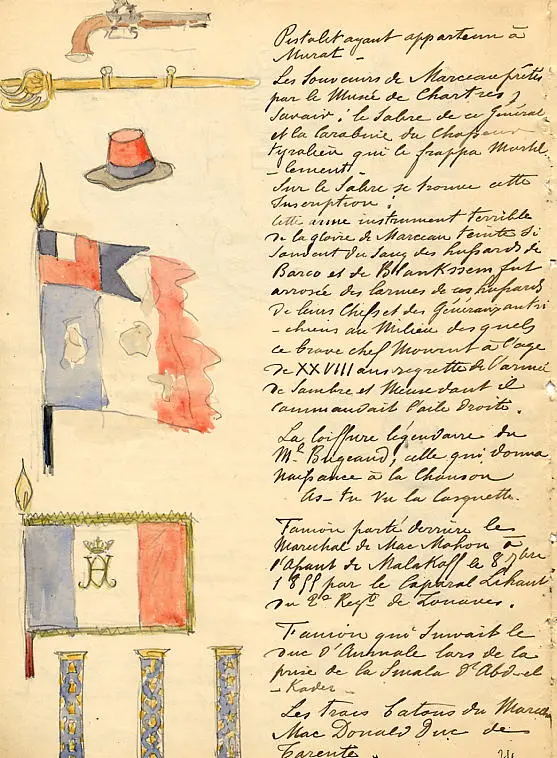 Pistolet ayant appartenu à
Murat -
Les Souvenirs de Marceau prêtés
par le Musée de Chartres,
Savoir : le Sabre de ce Général
et la Carabine du Chasseur
tyrolien qui le frappa Mortel
-lement
Sur le Sabre se trouve cette
Inscription :
Cette arme instrument terrible
de la gloire de Marceau teinte si
souvent du sang des hussards de
Barco et de Blankssem fut
arrosée des larmes de ces hussards
de leurs Chefs et des Généraux autri
-chiens au Milieu des quels
ce brave chef Mourut à l'age
de XXVIII ans regretté de l'armée
de Sambre et Meuse dont il
commandait l'aile droite.
La Coiffure légendaire du
Mal Bugeaud, celle qui donna
naissance à la Chanson
As-tu vu la Casquette.
Fanion porté derrière le
Maréchal de Mac Mahon à
l'assaut de Malakoff le 8 7bre
1855 par le Caporal Lihaut
du 2e Regt de Zouaves.
Fanion qui Suivait le
Duc d'Aumale lors de la
prise de la Smala d'Abd-el
-Kader -
Les trois batons du Marechal
Mac Donald Duc de
Tarente.